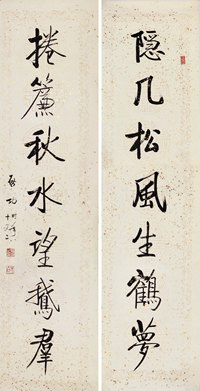 隐几松風生鶴夢
捲簾秋水望鵝羣